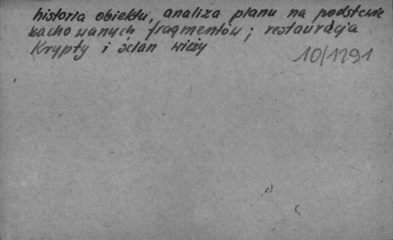 historia obiektu, analiza planu na podstawie
zachowanych fragmentów; restauracja
Krypty i ścian wieży
10/1291